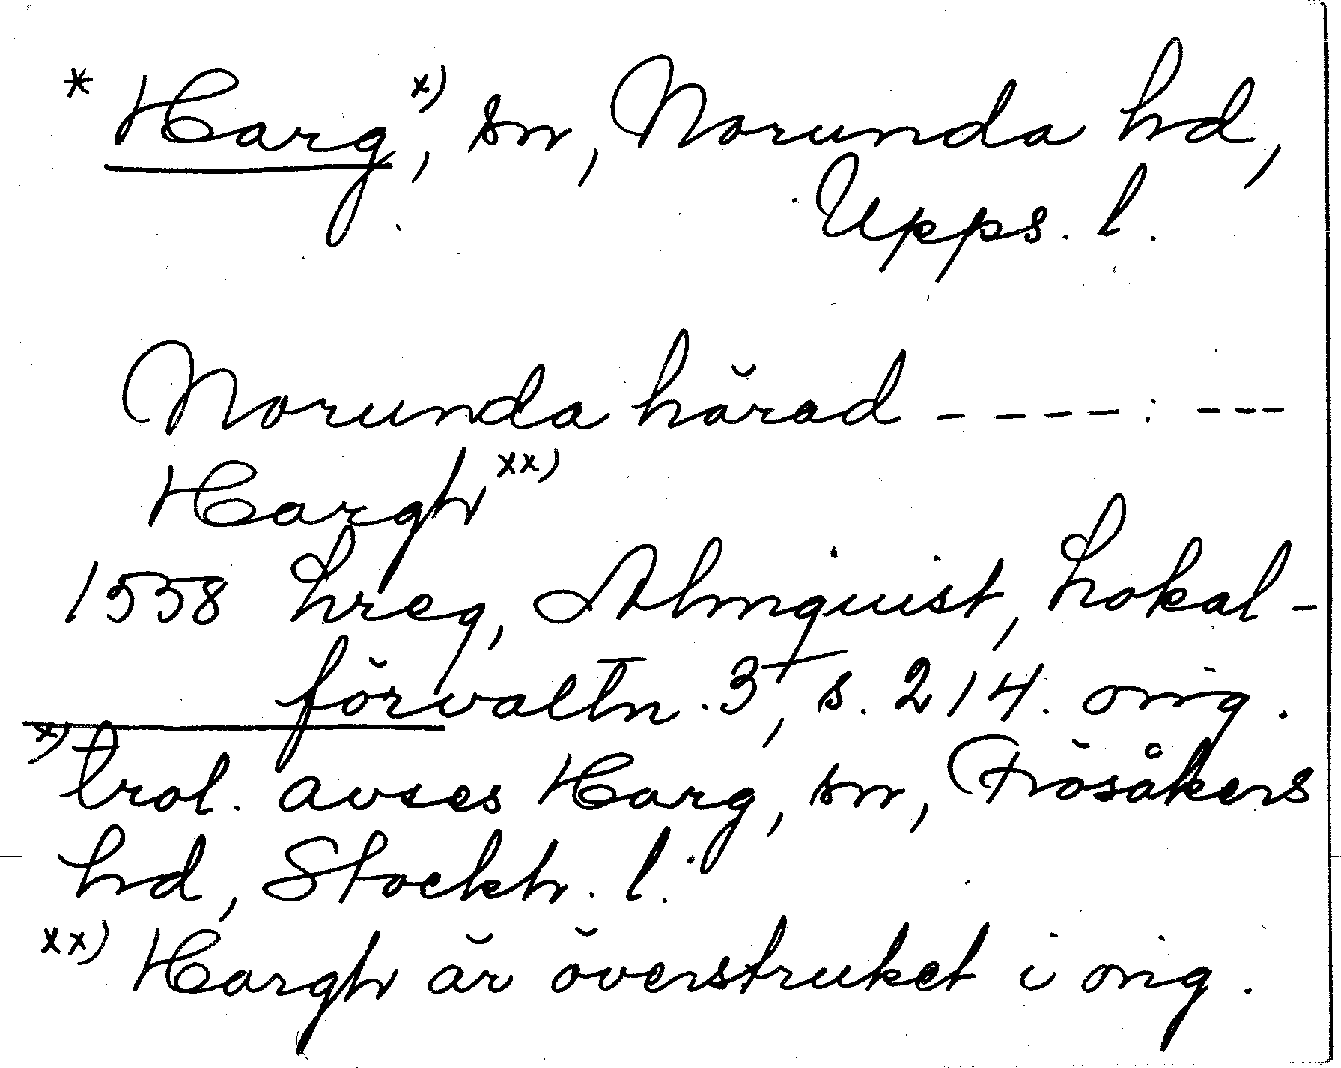 * Harg x), sn, Norunda hd,
Upps. l.
Norunda härad - - - - : - - -
Hargh xx)
1558 hreg, Almquist, Lokal-
förvaltn. 3, s. 214. orig.
x) trol. avses Harg, sn, Frösåkers
hd, Stockh. l.
xx) Hargh är överstruket i orig.